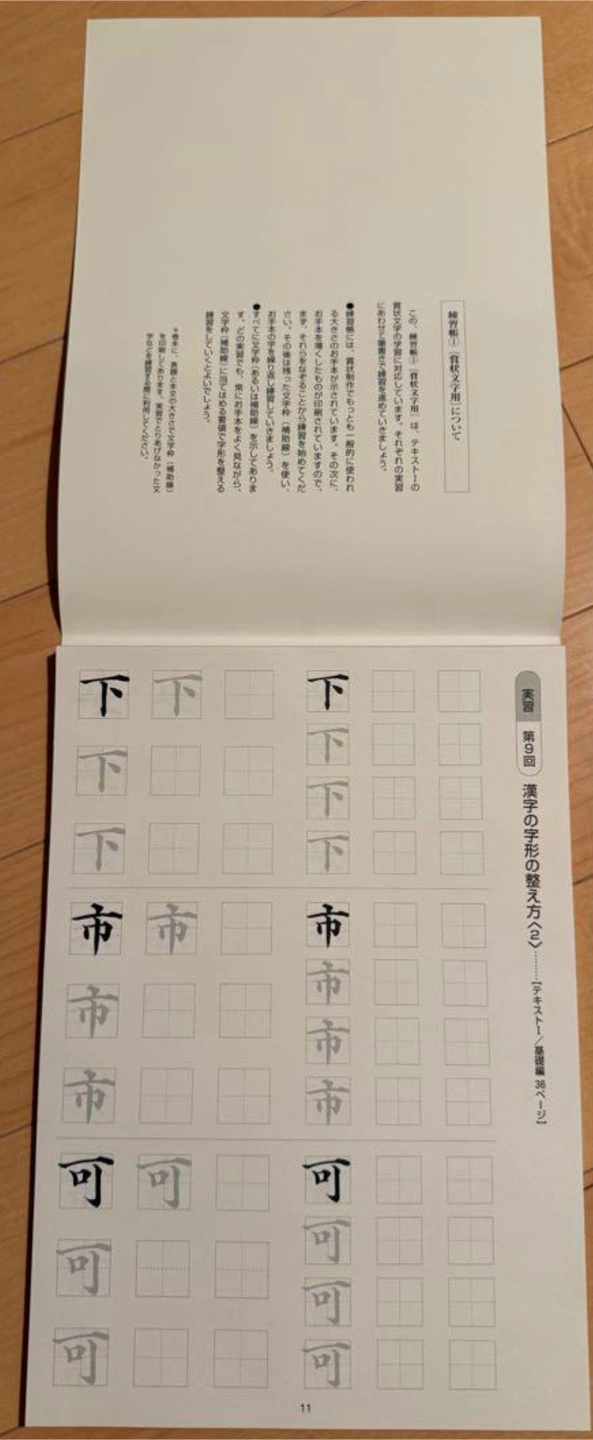 練習帳①「賞状文字用」について
この、練習帳①「賞状文字用」は、テキストⅠの
賞状文字の学習に対応しています。それぞれの実習
にあわせて筆書きで練習を進めていきましょう。
●練習帳には、賞状制作でもっとも一般的に使われ
る大きさのお手本が示されています。その次に、
お手本を薄くしたものが印刷されていますので、
まず、それらをなぞることから練習を始めてくだ
さい。その後は残った文字枠（補助線）を使い、
お手本の字を繰り返し練習していきましょう。
●すべてに文字枠（あるいは補助線）を示してありま
す。どの実習でも、常にお手本をよく見ながら、
文字枠（補助線）に当てはめる要領で字形を整える
練習をしていくとよいでしょう。
＊巻末に、表題と本文の大きさで文字枠（補助線）
を印刷してあります。実習でとりあげなかった文
字などを練習する際に利用してください。
実習 第9回 漢字の字形の整え方〈2〉………［テキストⅠ／基礎編 36ページ］
下 下 下 下
市 市 市 市
可 可 可 可
下 下 下
市 市 市
可 可 可
下
市
可
11